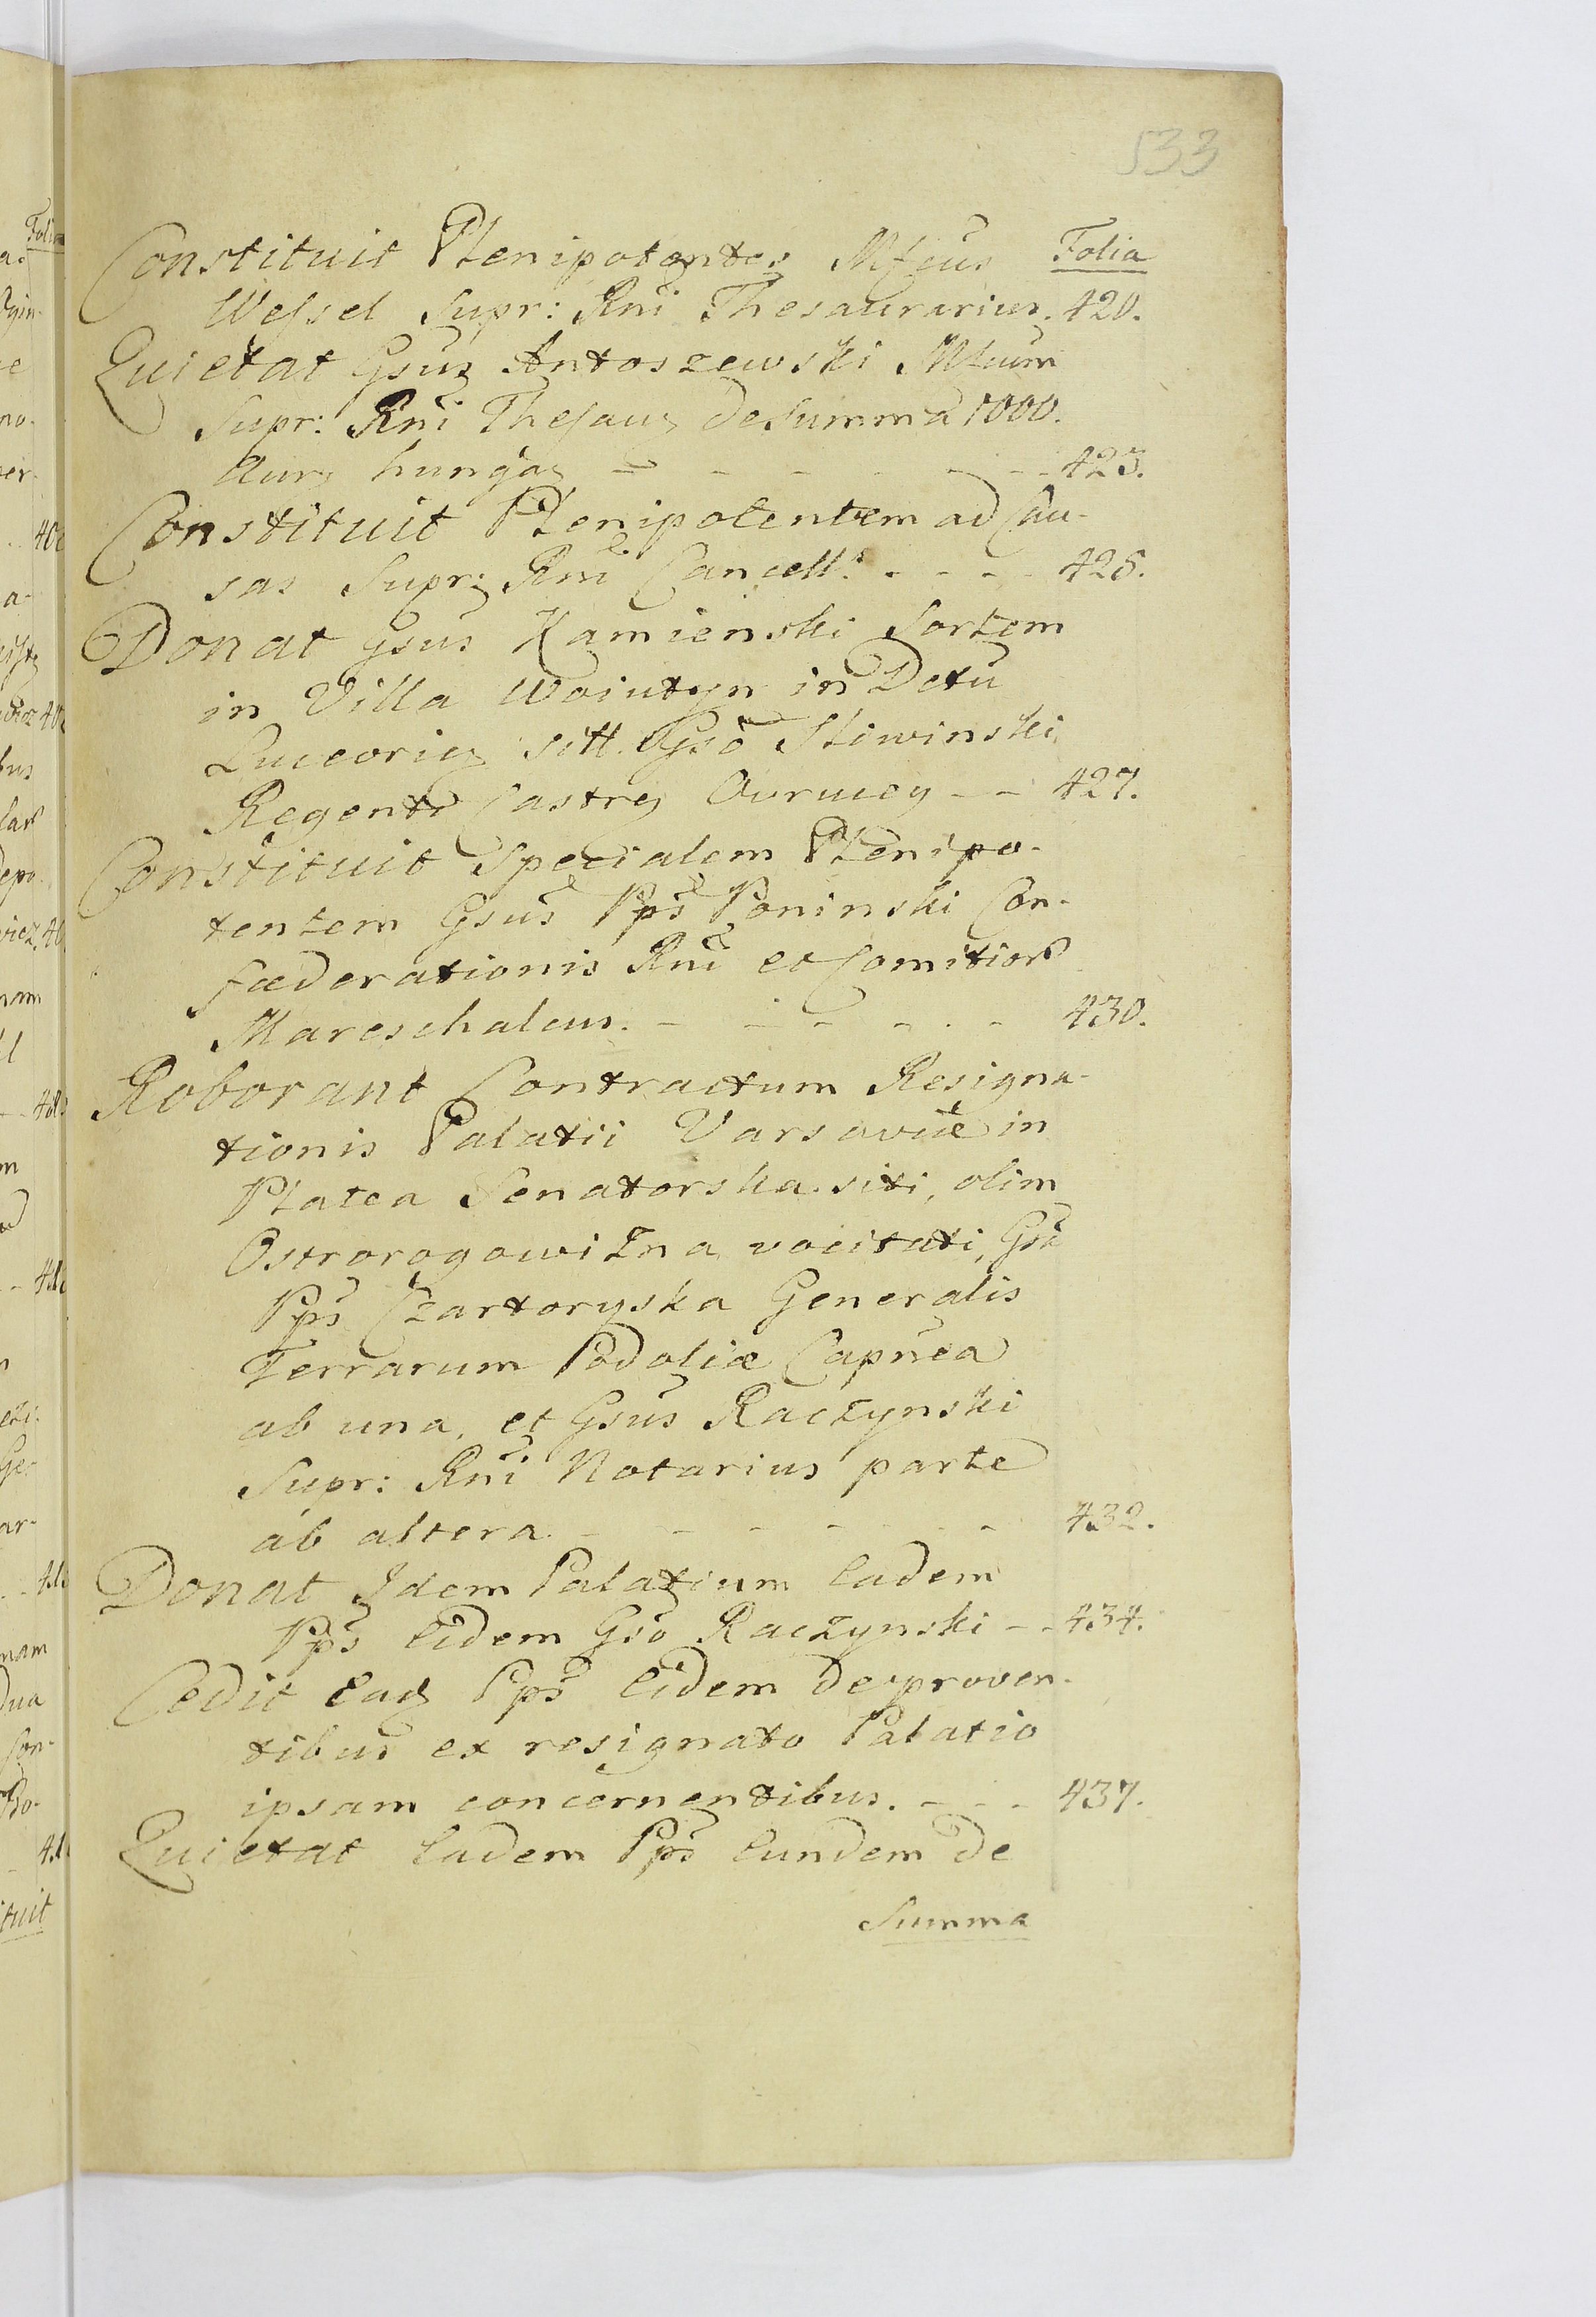 533
Constituit Plenipotentes Mfcus Folia
Wessel Supr: Rni Thesaurarius. 420.
Quietat Gsus Antoszewski Mfcum
Supr: Rni Thesaur de Summa 1000.
Aur hunga - - - - - - 423.
Constituit Plenipotentem ad Cau-
sas Supr: Rni Cancell. - - - - 425.
Donat Gsus Kamienski Sortem
in Villa Woiutyn in Dctu
Luceorien sitt. Gso Sliwinski
Regenti Castren Ovrucen - - 427.
Constituit Specialem Plenipo-
tentem Gsus Pps Poninski Con-
fæderationis Rni et Comitior
Mareschalcus. - - - - - - 430.
Roborant Contractum Resigna-
tionis Palatii Varsaviæ in
Platea Senatorska siti, olim
Ostrorogowizna vocitati, Gsa
Pps Czartoryska Generalis
Terrarum Podoliæ Capnea
ab una, et Gsus Raczynski
Supr: Rni Notarius parte
ab altera. - - - - - - 432.
Donat Idem Palatium Eadem
Pps Eidem Gso Raczynski - - 434.
Cedit Ead Pps Eidem de proven-
tibus ex resignato Palatio
ipsam concernentibus. - - - 437.
Quietat Eadem Pps Eundem de
Summa